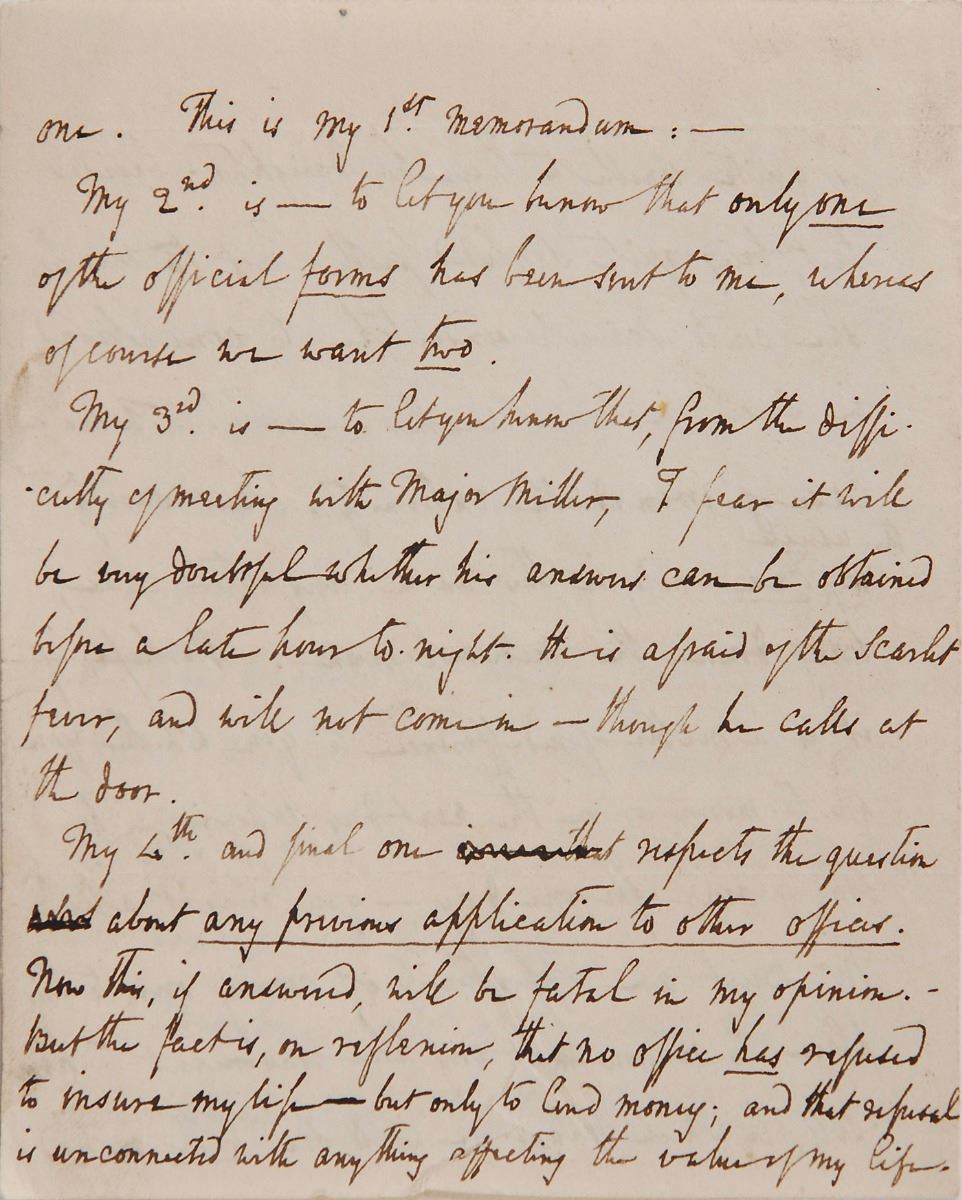 one. This is my 1st. memorandum : —
My 2nd. is — to let you know that only one
of the official forms has been sent to me, whereas
of course we want two.
My 3rd. is — to let you know that, from the diffi-
-culty of meeting with Major Miller, I fear it will
be very doubtful whether his answers can be obtained
before a late hour to-night. He is afraid of the Scarlet
fever, and will not come in — though he calls at
the door.
My 4th. and final one respects the question
about any previous application to other offices.
Now this, if answered, will be fatal in my opinion. -
But the fact is, on reflexion, that no office has refused
to insure my life — but only to lend money; and that refusal
is unconnected with anything affecting the value of my life.